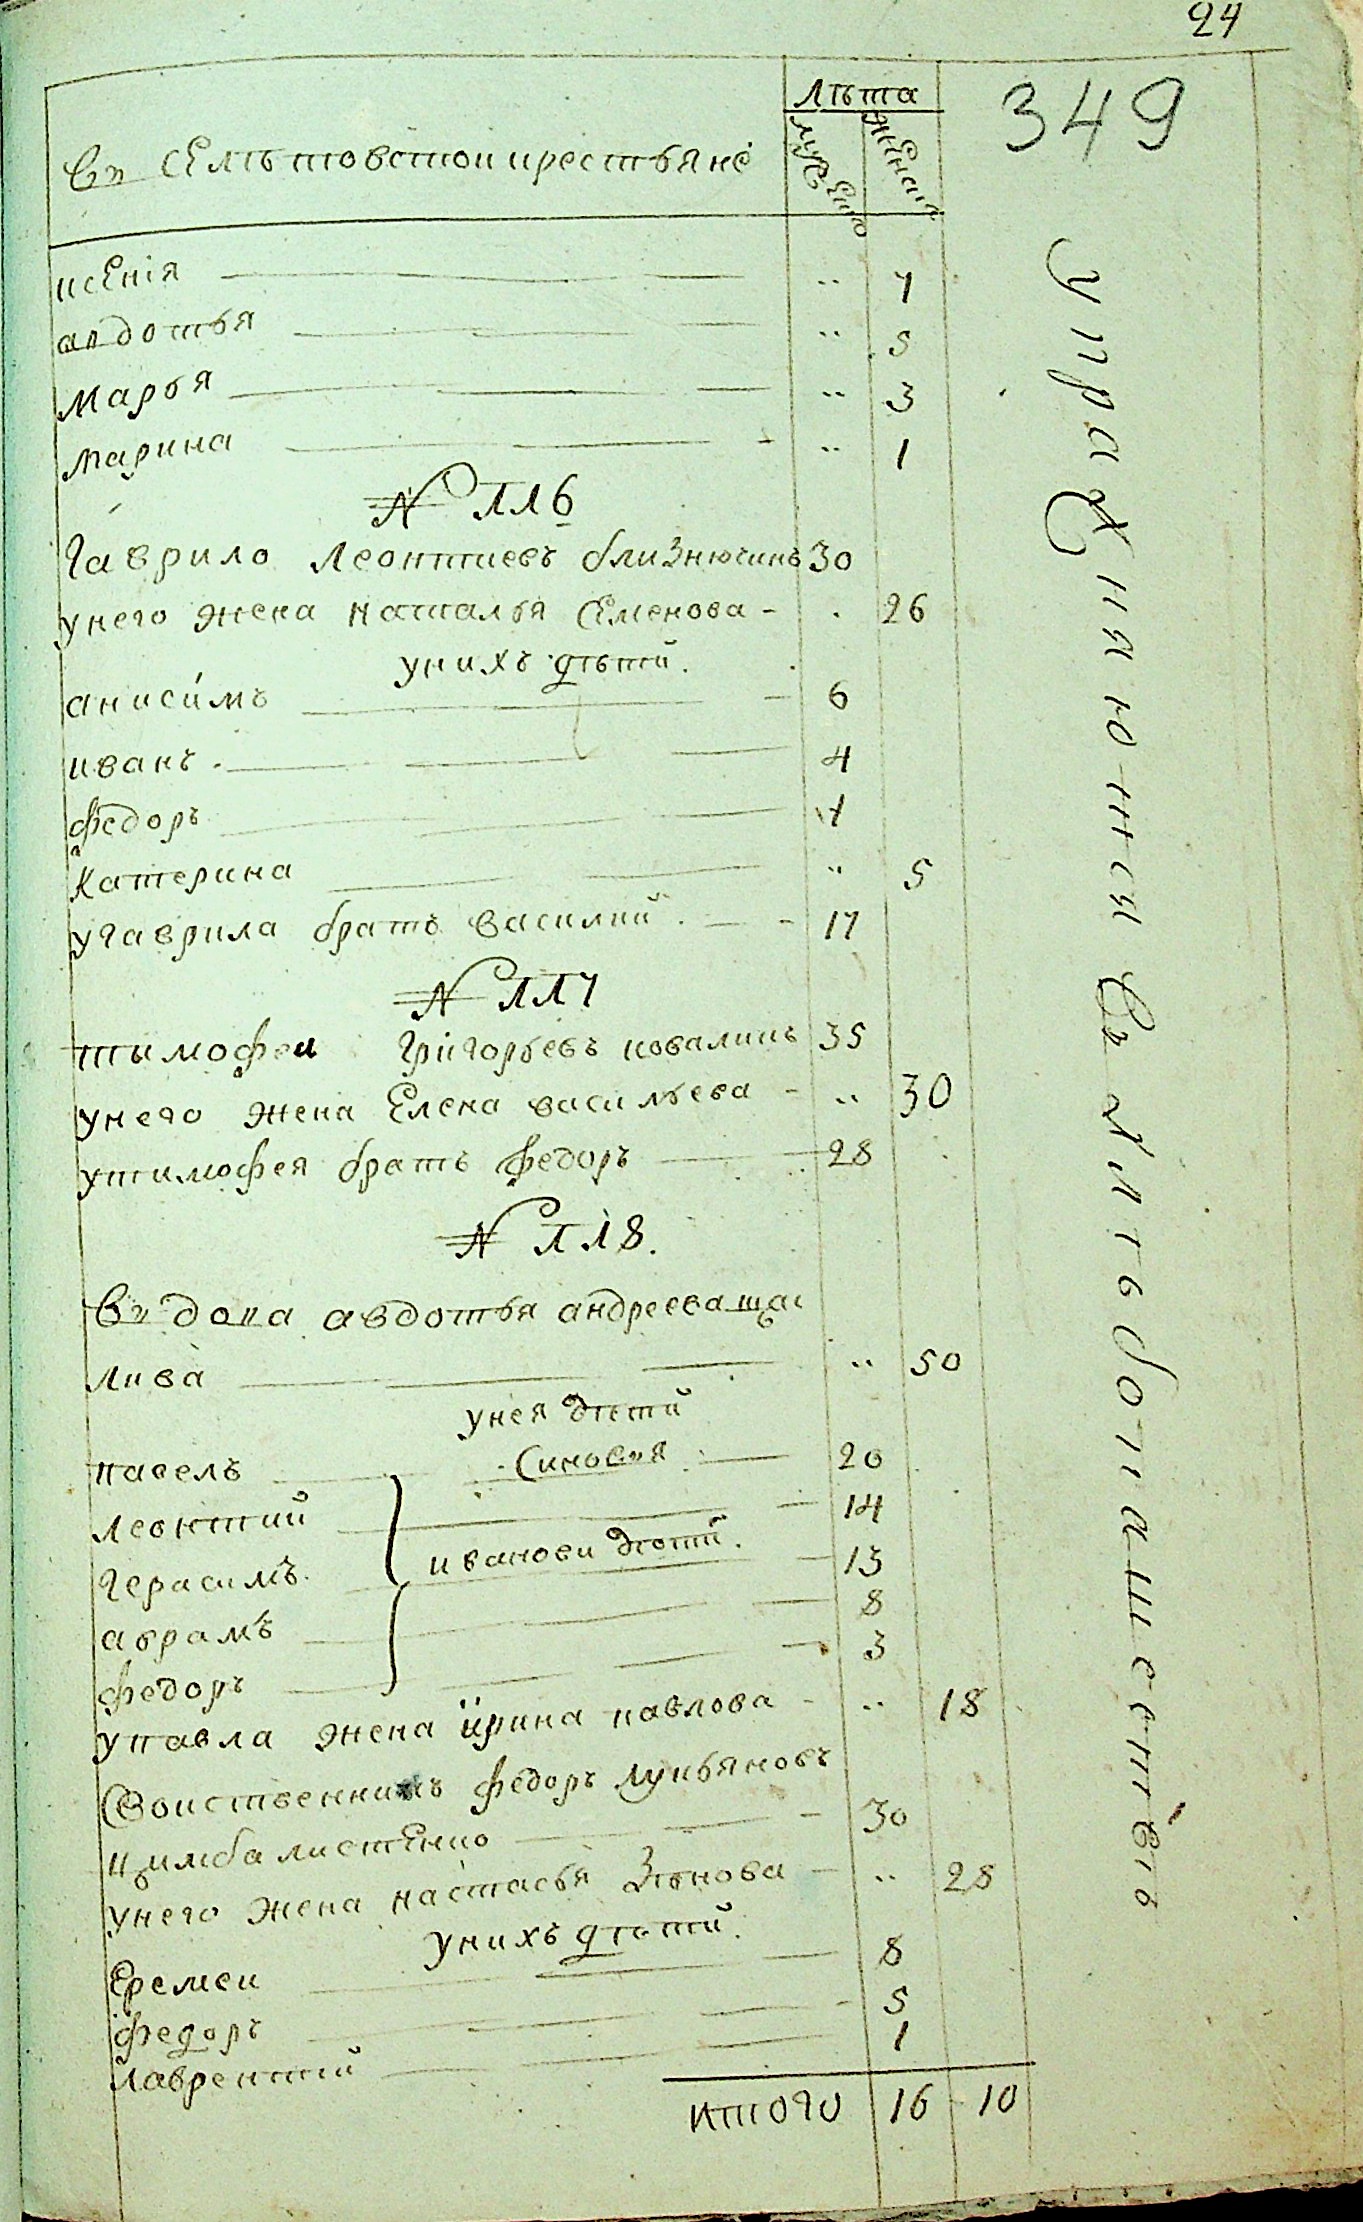 24
349
лѣта
мужеско
женска
въ селѣ товстои крестьяне
ксенія .. 7
авдотья .. 5
Марья .. 3
Марина .. 1
N 116
Гаврило Леонтиевъ близнючинъ 30
унего жена наталья Семенова . 26
унихъ дѣтй
анисимъ 6
иванъ 4
федоръ 1
катерина .. 5
угаврила братъ василий 17
N 117
тимофеи Григорьевъ ковалинъ 35
унего жена Елена васильева .. 30
утимофея братъ федоръ 28
N 118.
вдова авдотья андреева
лива .. 50
унея дѣтй
павелъ синовья 20
леонтий 14
герасимъ иванови дѣтй 13
аврамъ 8
федоръ 3
упавла жена ирина павлова .. 18
Своиственникъ федоръ лукьяновъ
цимбалистенко 30
унего жена настасья Зѣнова .. 28
унихъ дѣтй.
Еремеи 8
федоръ 5
лаврентий 1
итого 16 10